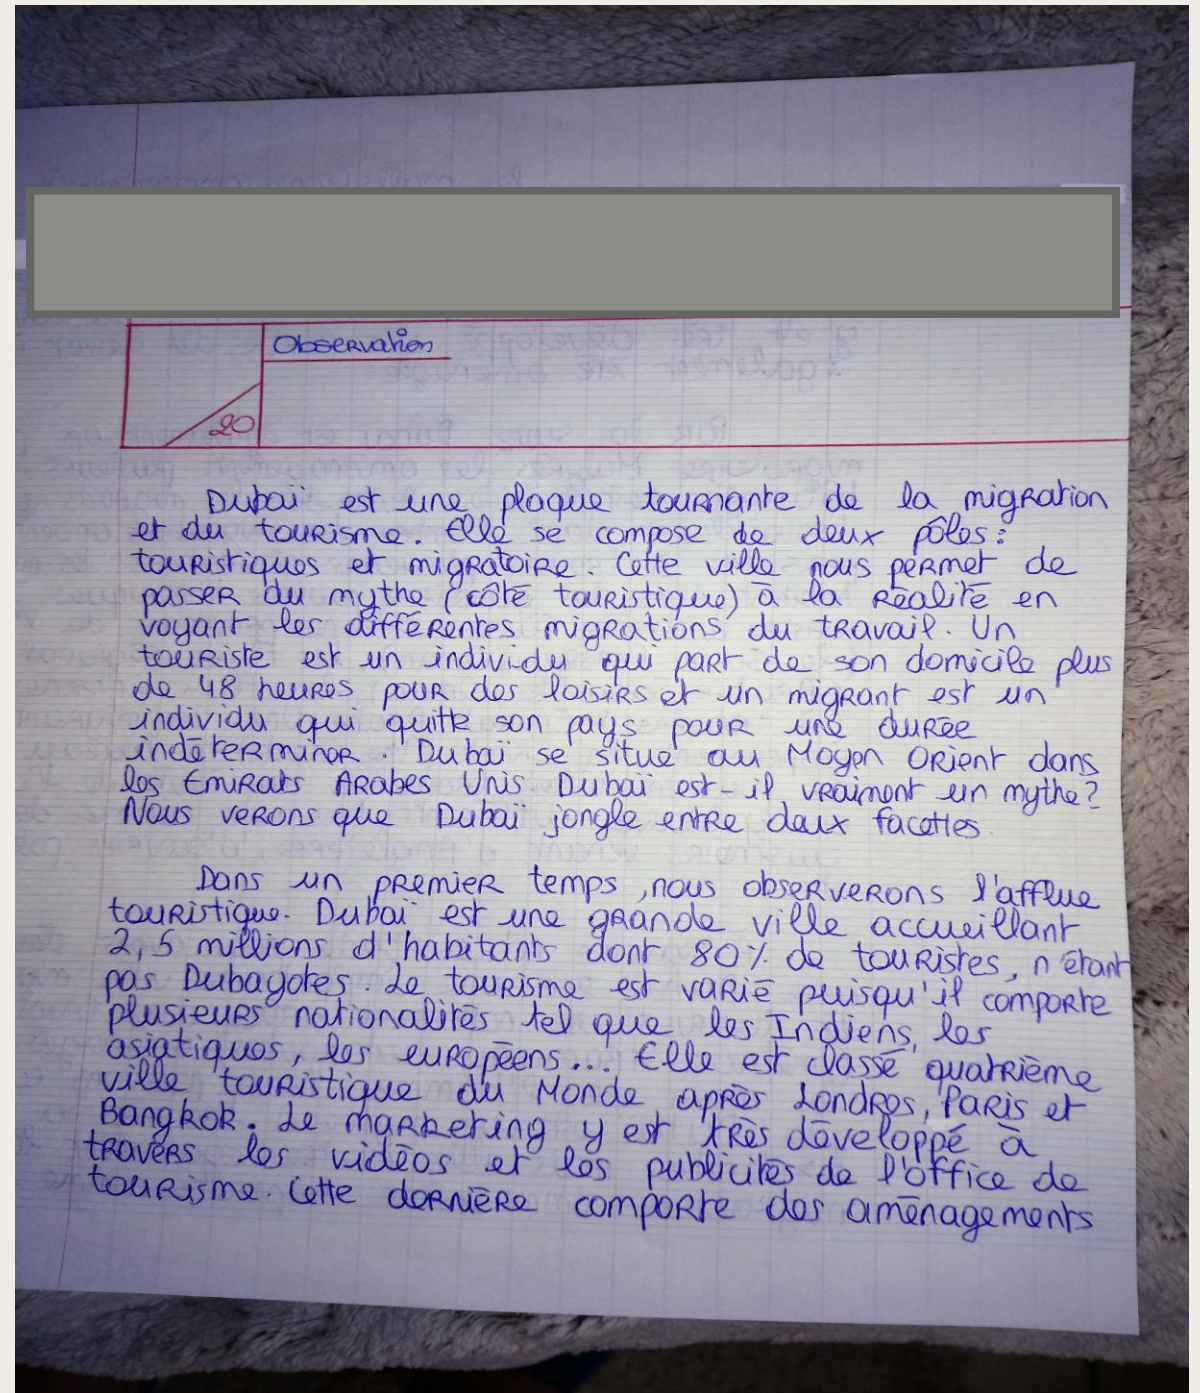 Observation
20
Dubaï est une plaque tournante de la migration
et du tourisme. Elle se compose de deux pôles :
touristiques et migratoire. Cette ville nous permet de
passer du mythe (côté touristique) à la réalité en
voyant les différentes migrations du travail. Un
touriste est un individu qui part de son domicile plus
de 48 heures pour des loisirs et un migrant est un
individu qui quitte son pays pour une durée
indéterminer. Dubaï se situe au Moyen Orient dans
les Emirats Arabes Unis. Dubaï est-il vraiment un mythe?
Nous verons que Dubaï jongle entre deux facettes.
Dans un premier temps, nous observerons l'afflue
touristique. Dubaï est une grande ville accueillant
2,5 millions d'habitants dont 80% de touristes, n'étant
pas Dubayotes. Le tourisme est varié puisqu'il comporte
plusieurs nationalités tel que les Indiens, les
asiatiques, les européens... Elle est classé quatrième
ville touristique du Monde après Londres, Paris et
Bangkok. Le marketing y est très développé à
travers les vidéos et les publicités de l'office de
tourisme. Cette dernière comporte des aménagements